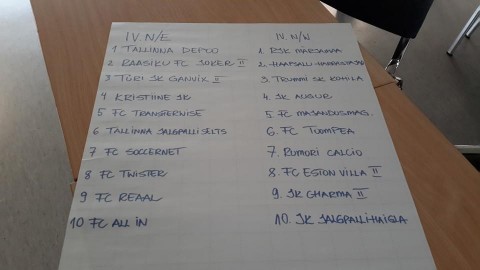 IV. N/E
1 TALLINNA DEPOO
2 RAASIKU FC JOKER II
3 TÜRI JK GANVIX II
4 KRISTIINE JK
5 FC TRANSFERWISE
6 TALLINNA JALGPALLI SELTS
7 FC SOCCERNET
8 FC TWISTER
9 FC REAAL
10 FC ALL IN
IV. N/W
1. RJK MÄRJAMAA
2.
3. TRUMMI JK KOHILA
4. JK AUGUR
5 FC MAJANDUSMAG.
6. FC TOOMPEA
7. RUMORI CALCIO
8. FC ESTON VILLA II
9. JK CHARMA II
10. JK JALGPALLIHAIGLA